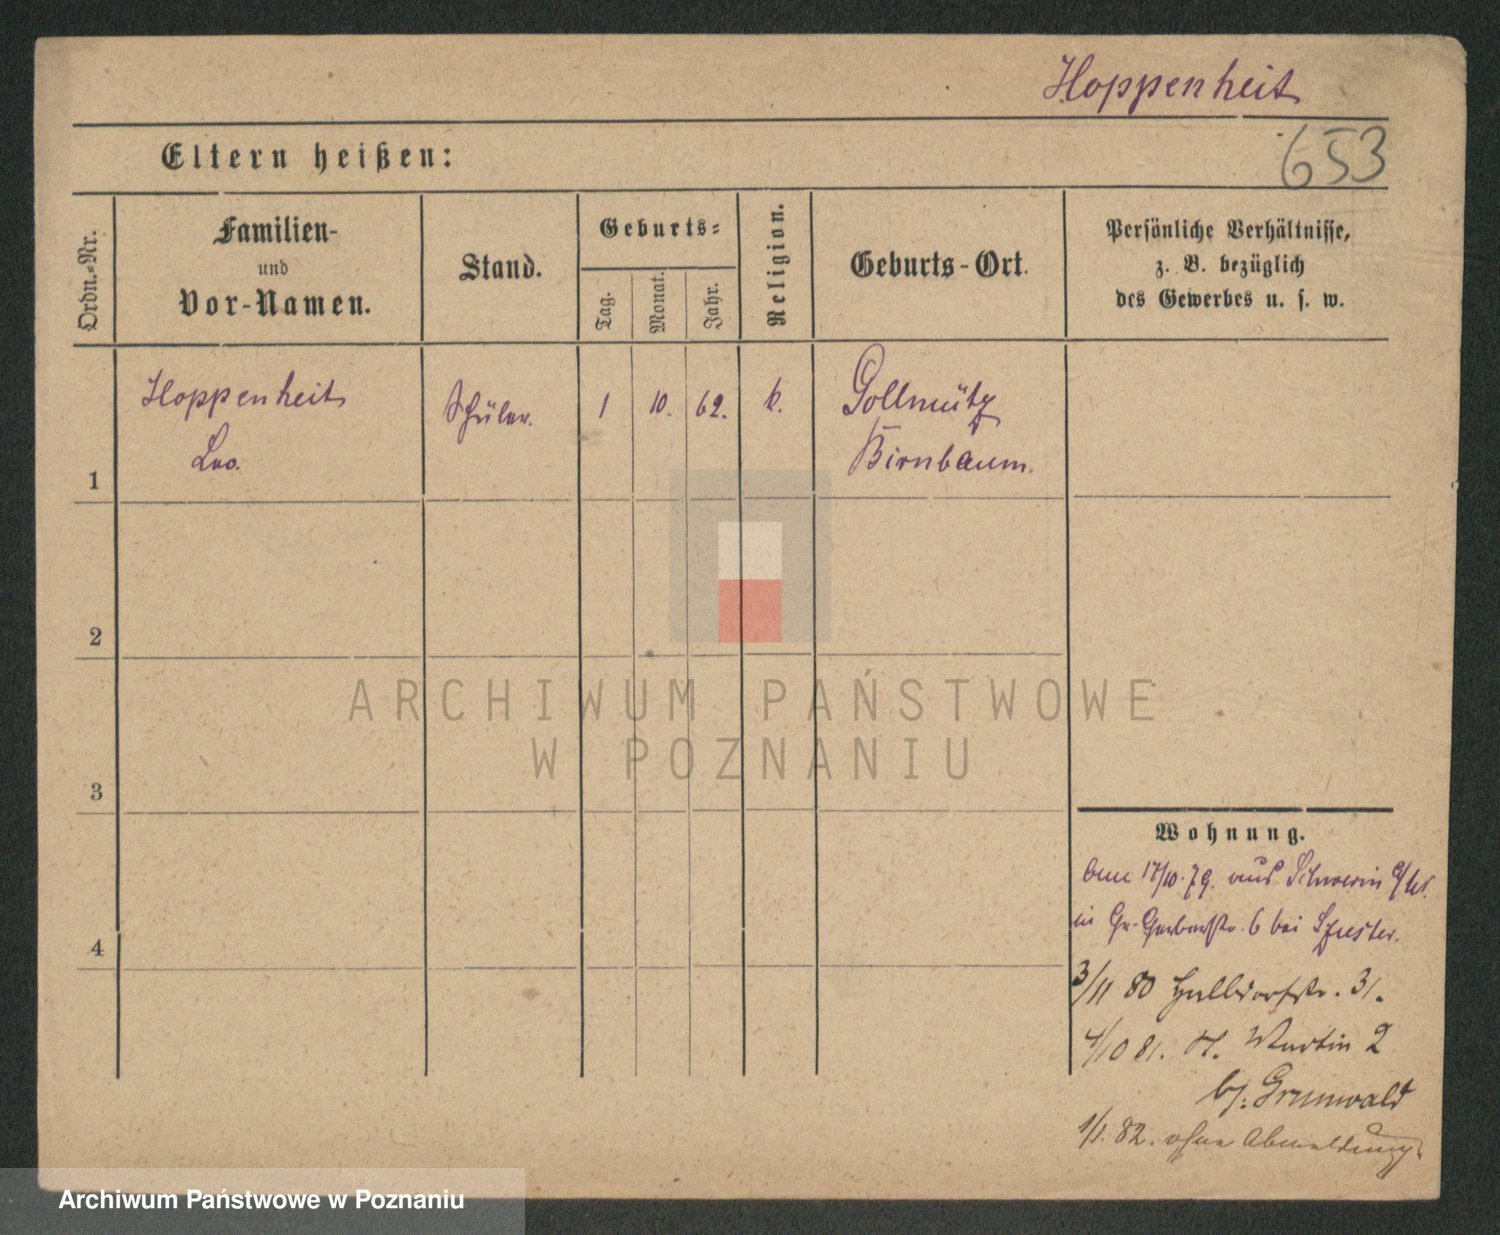 Hoppenheit
653
Eltern heißen:
Ordn.-Nr.
Familien-
und
Vor-Namen.
Stand.
Geburts-
Tag.
Monat.
Jahr.
Religion.
Geburts-Ort.
Persönliche Verhältnisse,
z. B. bezüglich
des Gewerbes u. s. w.
1
Hoppenheit
Leo.
Schüler.
1
10.
62.
k.
Gollmütz
Birnbaum.
2
3
4
ARCHIWUM PAŃSTWOWE
W POZNANIU
Wohnung.
17/10. 79. aus Schwerin a/W.
in Gr. Gerberstr. 6 bei
3/11 80 Halbdorfstr. 31.
4/10 81. St. Martin 2
b/. Grunwald
1/1. 82. ohne Abmeldung
Archiwum Państwowe w Poznaniu